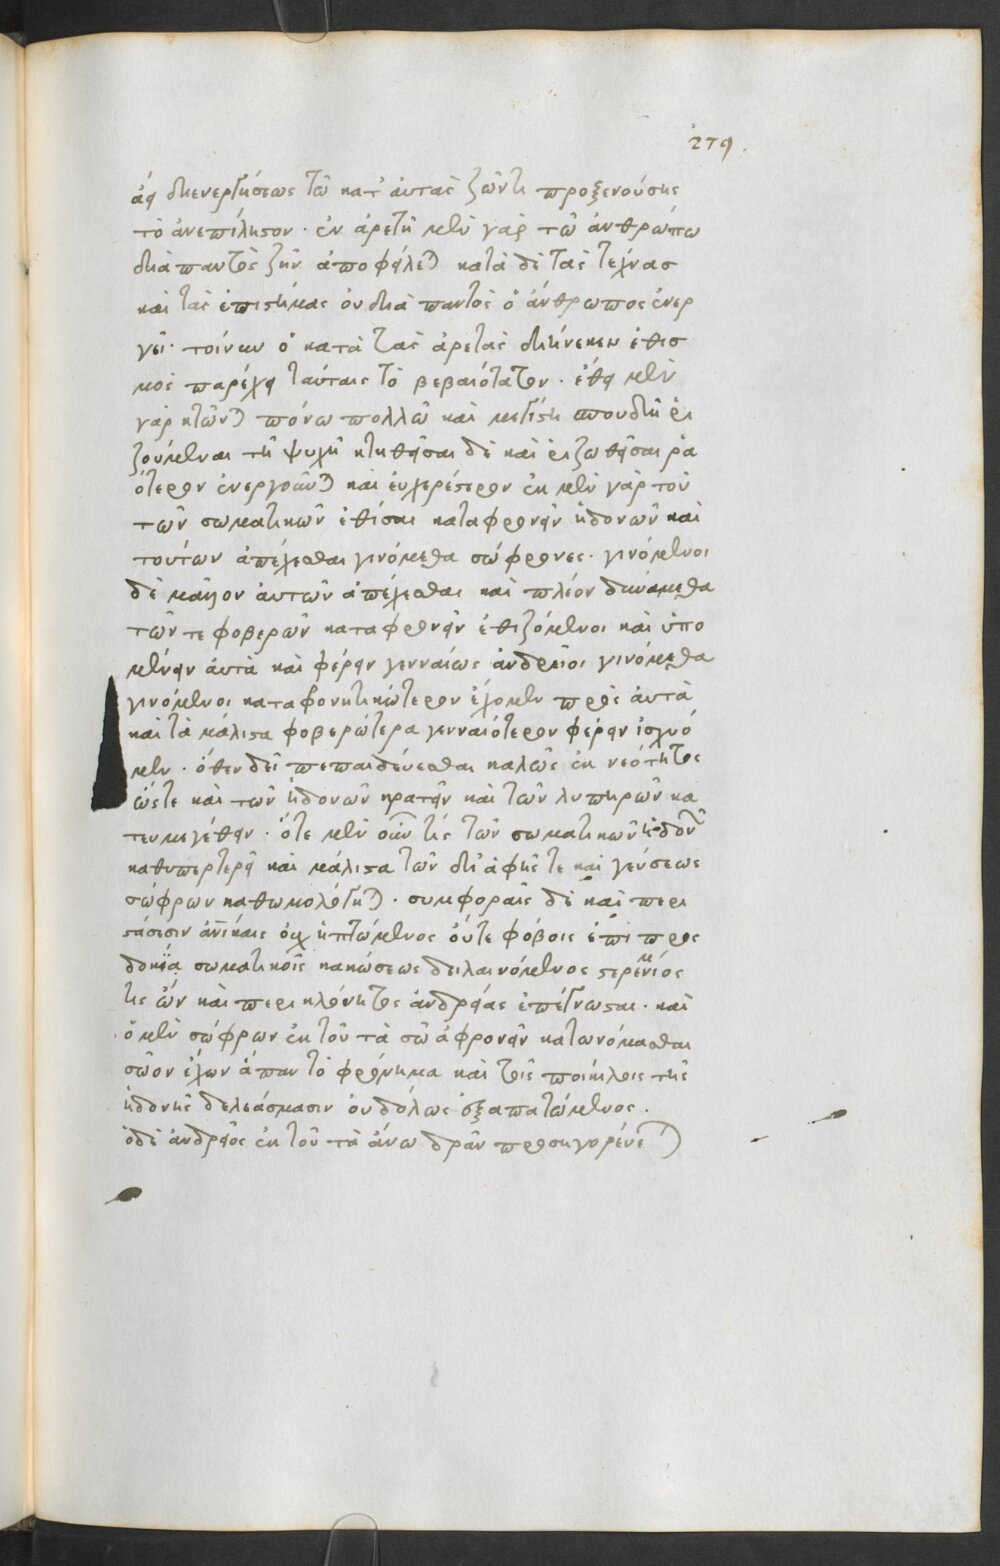 279.
ἀεὶ διενεργήσεως τῶ κατ' ἀυτὰς ζῶντι προξενούσης
τὸ ἀνεπίληστον· ἐν ἀρετῆ μὲν γὰρ τῶ ἀνθρώπω
διαπαντὸς ζῆν ἀποφείλεται κατὰ δὲ τὰς τέχνας
καὶ τὰς ἐπιστήμας οὐ διὰ παντὸς ὁ ἄνθρωπος ἐνερ
γεῖ· τοίνυν ὁ κατὰ τὰς ἀρετὰς διήνεκεν ἐθισ
μὸς παρέχει ταύταις τὸ βεβαιότατον.
γὰρ κτῶνται πόνω πολλῶ καὶ μεγίστη σπουδῆ ῥι
ζούμεναι τῆ ψυχῆ κτηθεῖσαι δὲ καὶ ῥιζωθεῖσαι ῥα
ότερον ἐνεργοῦνται καὶ ἐυχερέστερον ἐκ μὲν γὰρ τοῦ
τῶν σωματικῶν ἐθίσαι καταφρονεῖν ἡδονῶν καὶ
τούτων ἀπέχεσθαι γινόμεθα σώφρονες· γινόμενοι
δὲ μᾶλλον ἀυτῶν ἀπέχεσθαι καὶ πλέον δυνάμεθα
τῶν τε φοβερῶν καταφρονεῖν ἐθιζόμενοι καὶ ὑπο
μένειν ἀυτὰ καὶ φέρειν γενναίως ἀνδρεῖοι γινόμεθα
γινόμενοι καταφονητικώτερον ἔχομεν πρὸς ἀυτὰ
καὶ τὰ μάλιστα φοβερώτερα γενναιότερον φέρειν ἰσχύο
μεν· ὅθεν δεῖ πεπαιδεύεσθαι καλῶς ἐκ νεότητος
ὥστε καὶ τῶν ἡδονῶν κρατεῖν καὶ τῶν λυπηρῶν κα
τευμεγέθειν· ὅτε μὲν οὖν τίς τῶν σωματικῶν ἡδονῶν
καθυπερτερεῖ καὶ μάλιστα τῶν δι' ἁφῆς τε καὶ γεύσεως
σώφρων καθωμολόγηται· συμφοραῖς δὲ καὶ περι
στάσεσιν ἀνηκάις οὐχ ἡττώμενος οὔτε φόβοις ἐπὶ προς
δοκία σωματικοῖς κακώσεως δειλαινόμενος στερέμνιός
τις ὢν καὶ περικλόνητος ἀνδρείας ἐπέγνωσται· καὶ
ὁ μὲν σώφρων ἐκ τοῦ τὰ σῶα φρονεῖν κατωνόμασθαι
σῶον ἔχων ἅπαν τὸ φρόνημα καὶ τοῖς ποικίλοις τῆς
ἡδονῆς δελεάσμασιν οὐδόλως ἐξαπατώμενος·
ὁ δὲ ἀνδρεῖος ἐκ τοῦ τὰ ἄνω δρᾶν προσηγορένεται